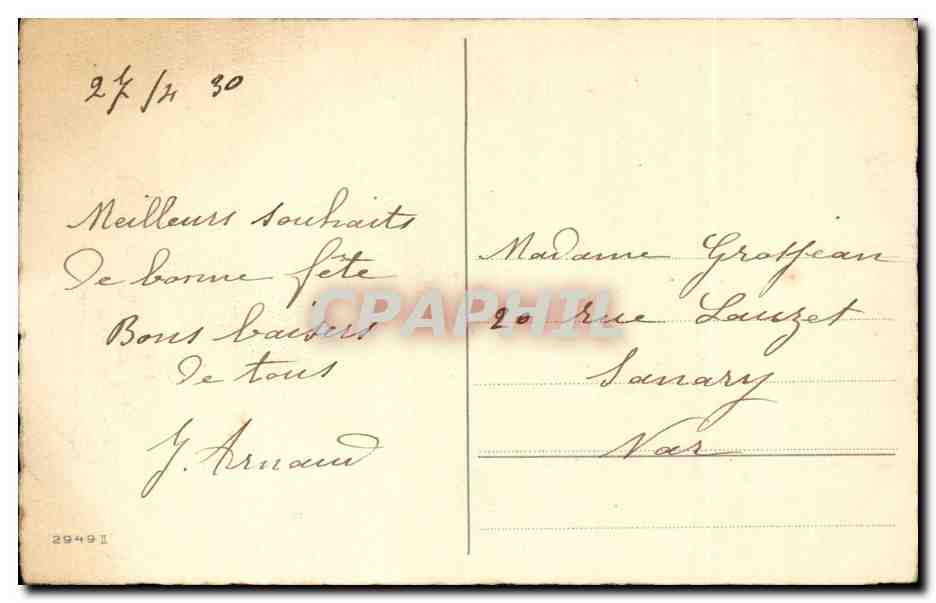 27/4 30
Meilleurs souhaits
de bonne fête
Bons baisers
de tous
J. Arnaud
2949 II
Madame Grosjean
20 rue Lauzet
Sanary
Var
CPAPHIL